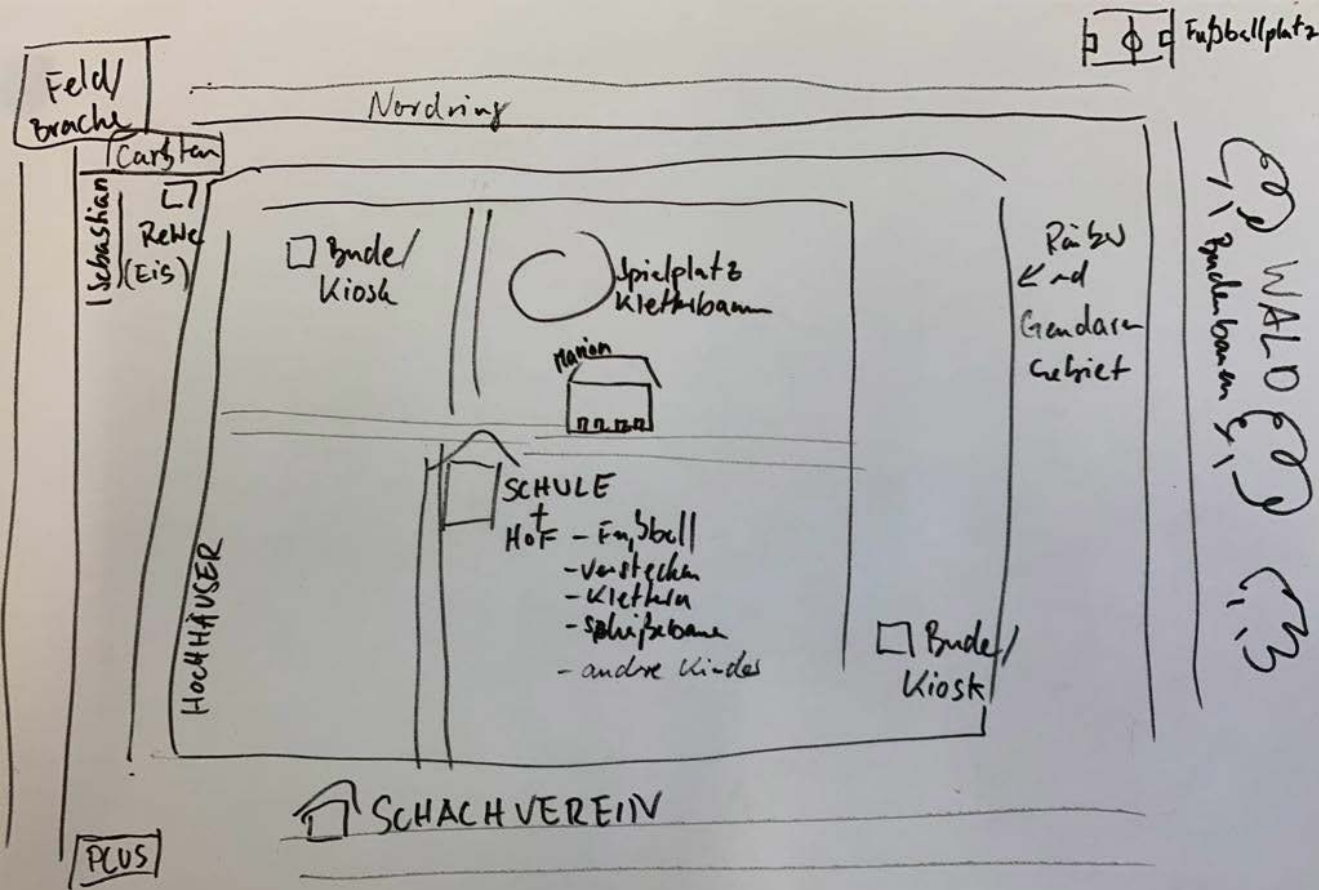 Fußballplatz
Feld/
Brache
Nordring
Carsten
Sebastian
ReWe
(Eis)
Bude/
Kiosk
Spielplatz
Kletterbaum
Marion
Räuber
und
Gendarm
Gebiet
WALD
Budenbauen
SCHULE
+
HOF - Fußball
- verstecken
- Klettern
- andre Kinder
HOCHHÄUSER
Bude/
Kiosk
SCHACHVEREIN
PLUS